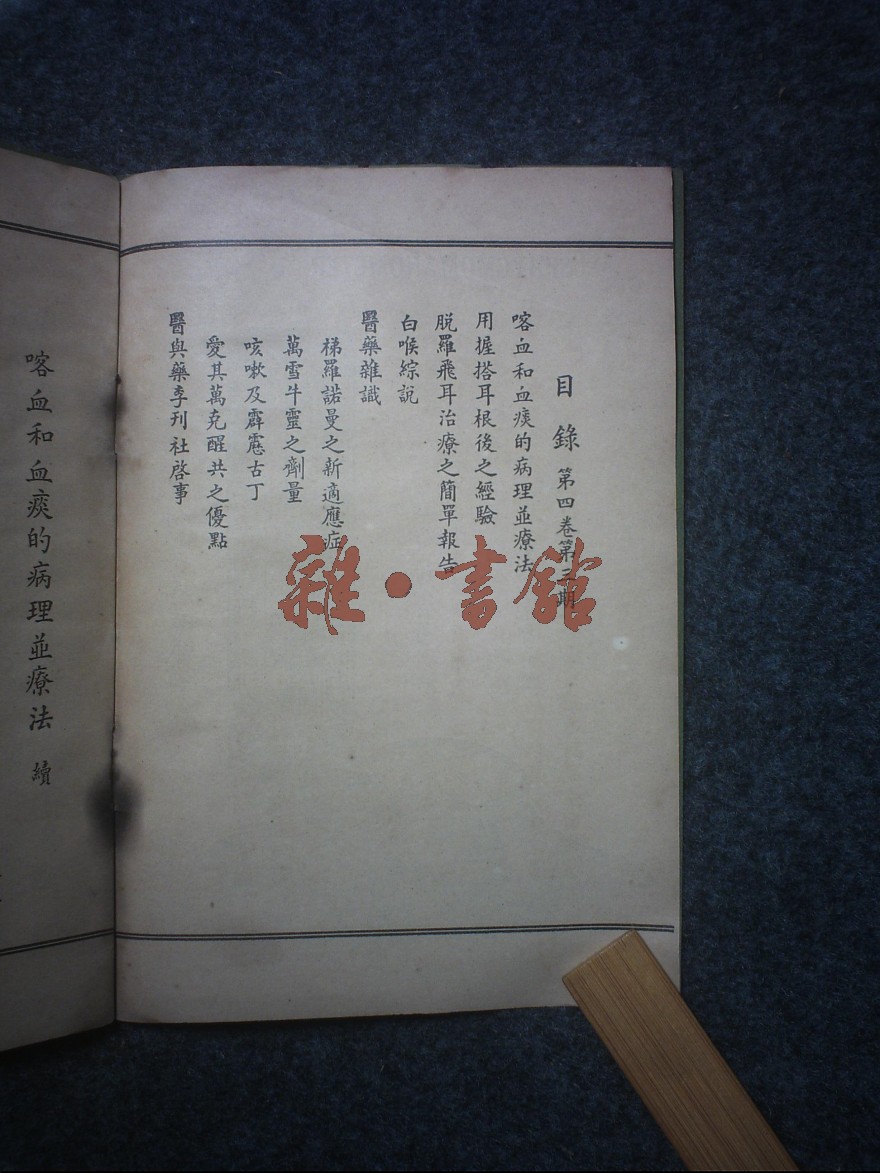 目錄 第四卷第三期
喀血和血痰的病理並療法
用握搭耳根後之經驗
脱羅飛耳治療之簡單報告
白喉綜說
醫藥雜識
梯羅諾曼之新適應症
萬雪牛靈之劑量
咳嗽及霹靂古丁
愛其萬克醒共之優點
醫與藥季刊社啓事
喀血和血痰的病理並療法 續
雜·書館